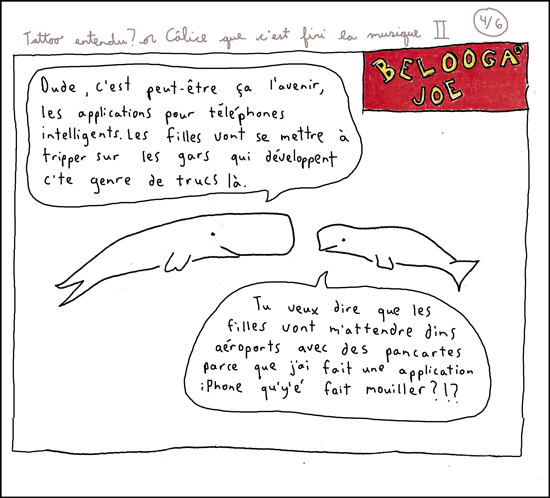 Tattoo entendu? or Câlice que c'est fini la musique II
4/6
BELOOGA
JOE
Dude, c'est peut-être ça l'avenir,
les applications pour téléphones
intelligents. Les filles vont se mettre à
tripper sur les gars qui développent
c'te genre de trucs là.
Tu veux dire que les
filles vont m'attendre dins
aéroports avec des pancartes
parce que j'ai fait une application
iPhone qu'y'é fait mouiller?!?